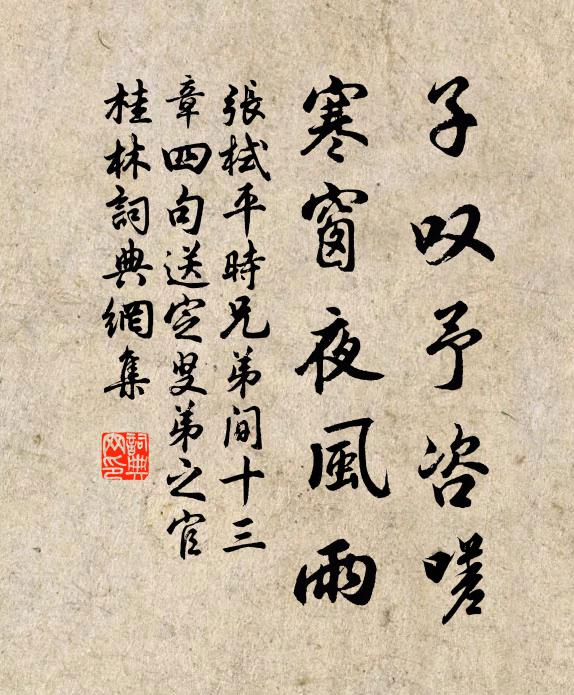 子叹予咨嗟
寒窗夜風雨
張栻平時兄弟間十三
章四句送定叟弟之官
桂林詞典網集
詞典網印